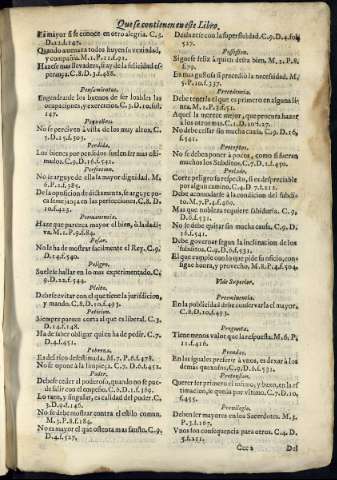 Que se contienen en este Libro.
Es mayor si se conoce en otro alegria. C. 3.
D. 12. f. 147.
Quando aumenta todos huyen su vezindad,
y compañia. M. 1. P. 12. f. 91.
Hazese mas llevadera, si ay de la felicidad es-
perança. C. 8. D. 3. f. 488.
Pensamientos.
Engendranse los buenos de ser loables las
ocupaciones, y exercicios. C. 3. D. 10. fol.
147.
Pequeños.
No se perciven à vista de los muy altos. C.
5. D. 1. f. 503.
Perdida.
Los bienes por perdidos suelen ser mas esti-
mulos. C. 9. D. 16. f. 541.
Perfeccion.
No se arguye de ella la mayor dignidad. M.
6. P. 2. f. 385.
De la oposicion de dictamenes, se arguye po-
ca semejança en las perfecciones. C. 8. D.
10. f. 493.
Permanencia.
Haze que parezca mayor el bien, ò la dadi-
va. M. 1. P. 9. f. 84.
Pesar.
No le ha de mostrar facilmente el Rey. C. 9.
D. 14. f. 540.
Peligro.
Suele se hallar en lo mas experimentado. C.
9. D. 12. f. 544.
Pleito.
Debese evitar con el que tiene la jurisdicion,
y mando. C. 8. D. 10. f. 493.
Peticion.
Siempre parece corta al que es liberal. C. 3.
D. 14. f. 148.
Ha de saber obligar quien ha de pedir. C. 7.
D. 4. f. 451.
Pobreza.
En del rico desestimada. M. 7. P. 6. f. 478.
No se opone à la limpieça. C. 7. D. 6. f. 452.
Poder.
Debese ceder al poderoso, quando no se pue-
de salir con el empeño. C. 8. D. 1. f. 486.
Lo raro, y singular, es calidad del poder. C.
3. D. 9. f. 146.
No se debe mostrar contra el estilo comun.
M. 3. P. 8. f. 184.
No es mayor el que ostenta mas fausto. C. 9.
D. 4. f. 527.
527.
Possession.
Sigue se feliz à quien desea bien. M. 1. P. 8.
f. 79.
Es mas gustosa si precediò la necessidad. M.
5. P. 10. f. 337.
Preeminencia.
Debe tenerla el que es primero en alguna li-
nea. M. 1. P. 3. f. 51.
Aquel la merece mejor, que procura hazer
à los otros mas. C. 1. D. 10. f. 27.
No debe cessar sin mucha causa. C. 9. D. 16.
f. 541.
Pretextos.
No se deben poner à pocos, como si fueran
muchos los Subditos. C. 7. D. 1. f. 450.
Prelado.
Corte peligra su respeto, si es despreciable
por algun camino. C. 4. D. 7. f. 212.
Debe acomodarse à la condicion del subdi-
to. M. 7. P. 4. f. 460.
Mas que nobleza requiere sabiduria. C. 9.
D. 6. f. 531.
No se debe quitar sin mucha causa. C. 9. D.
16. f. 541.
Debe governar segun la inclinacion de los
subditos. C. 9. D. 6. f. 531.
El que cumple con lo que pide su oficio, con-
sigue honra, y provecho. M. 8. P. 4. f. 504.
Vide Superior.
Preeminencia.
En la publicidad debe conservarla el mayor.
C. 8. D. 10. f. 493.
Pregunta.
Tiene menos valor que la respuesta. M. 6. P.
11. f. 426.
Prendas.
En las iguales prefiere à vnos, es dexar à los
demas quexosos. C. 9. D. 6. f. 531.
Pretension.
Querer ser primero el mismo, y buen, en la es-
timacion, se quenta por vicio. C. 7. D. 10,
f. 455.
Privilegio.
Deben ser mayores en los Sacerdotes. M. 3.
P. 3. f. 167.
Vnos son consequencia para otros. C. 4. D.
5. f. 251.
Ccc 2
Del